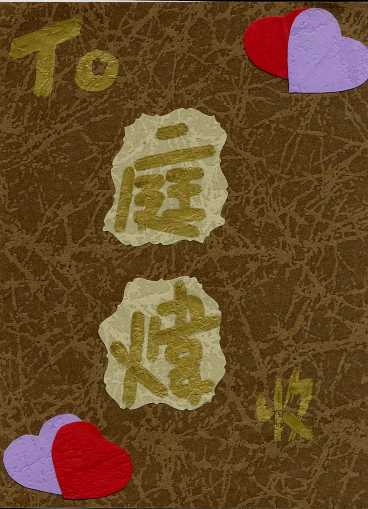 To
庭
煒
收